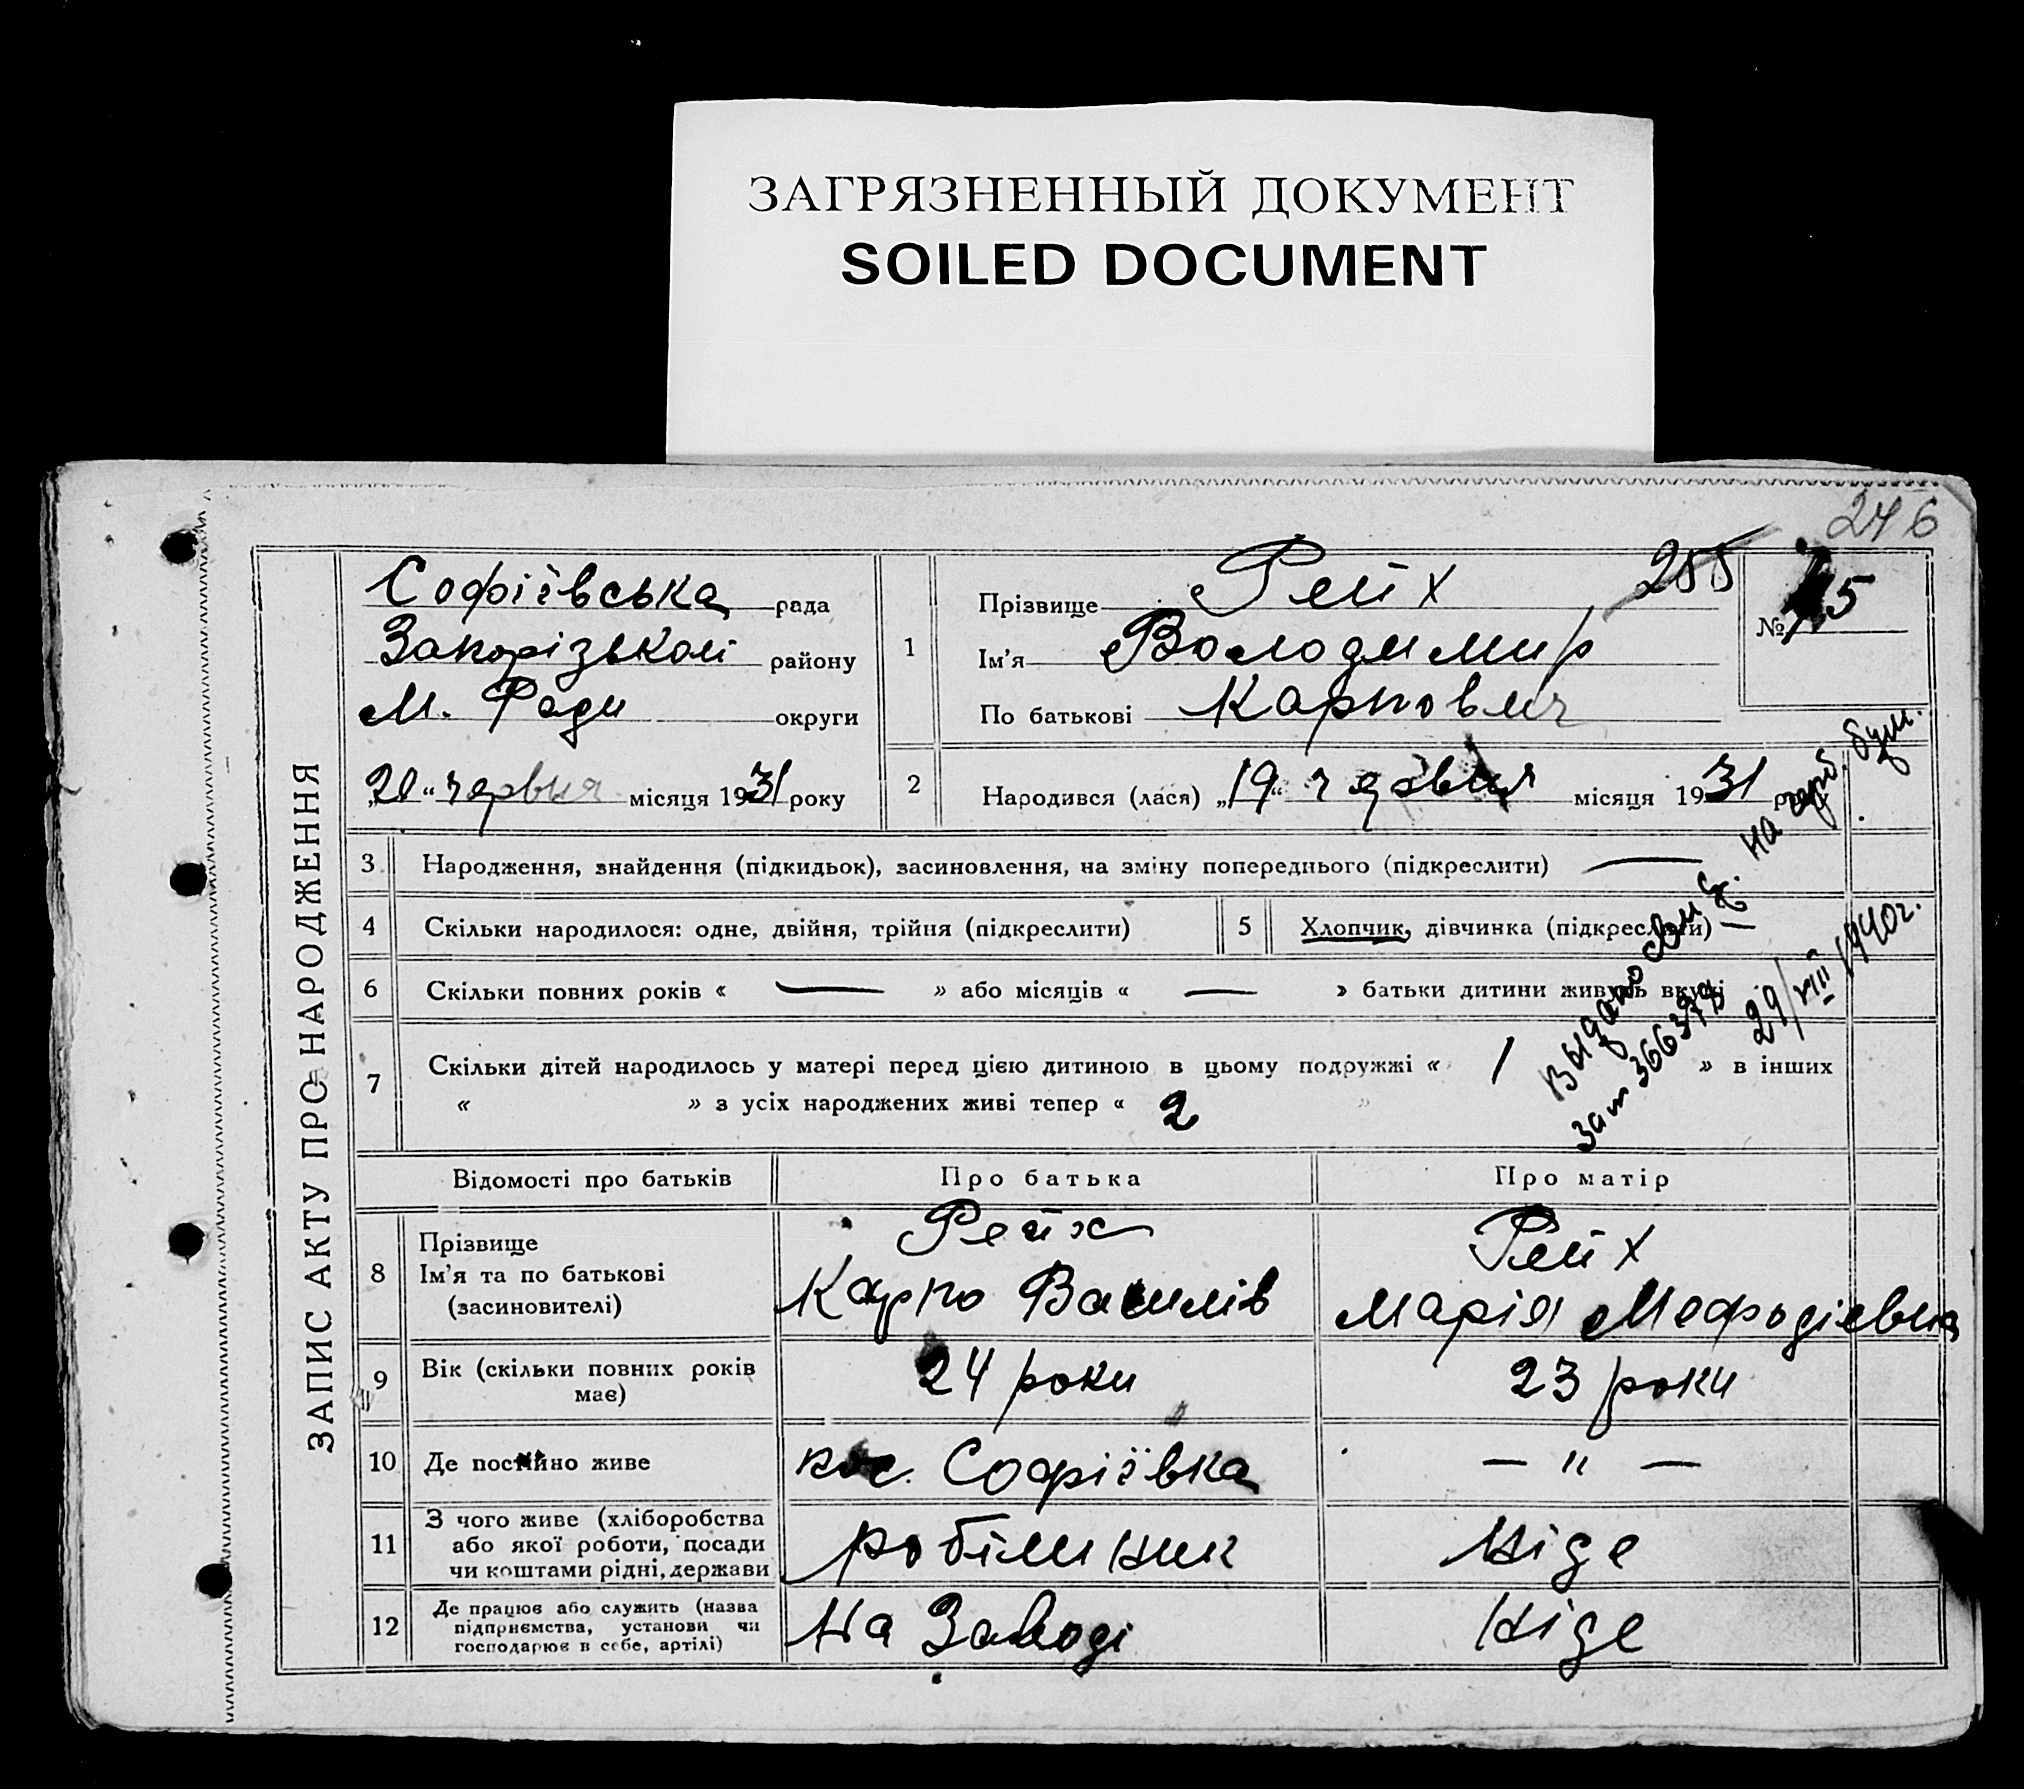 ЗАГРЯЗНЕННЫЙ ДОКУМЕНТ
SOILED DOCUMENT
246
ЗАПИС АКТУ ПРО НАРОДЖЕННЯ
Софіївська рада
Запорізької району
М. Ради округи
„20“ червня місяця 1931 року
1
Прізвище Рейх
255
№ 5
Ім'я Володимир
По батькові Карпович
2
Народився (лася) „19“ червня місяця 1931 року
3 Народження, знайдення (підкидьок), засиновлення, на зміну попереднього (підкреслити) —
4 Скільки народилося: одне, двійня, трійня (підкреслити)
5 Хлопчик, дівчинка (підкреслити) —
6 Скільки повних років « — » або місяців « — » батьки дитини живуть вкупі
7 Скільки дітей народилось у матері перед цією дитиною в цьому подружжі « 1 » в інших
« » з усіх народжених живі тепер « 2 »
Выдано на герб. бум.
366378 29/VIII 1940г.
Відомості про батьків Про батька Про матір
8 Прізвище Рейх Рейх
Ім'я та по батькові Карпо Василів Марія Мефодієвна
(засиновителі)
9 Вік (скільки повних років 24 роки 23 роки
має)
10 Де постійно живе Софіївка — " —
11 З чого живе (хліборобства
або якої роботи, посади робітник Ніде
чи коштами рідні, держави
12 Де працює або служить (назва
підприємства, установи чи На Заводі Ніде
господарює в себе, артілі)